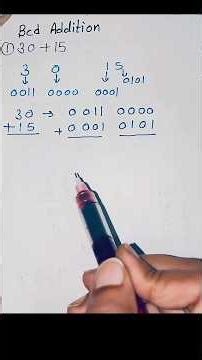 Bcd Addition
① 30 + 15
3 0 15
0101
0011 0000 0001
30 → 0011 0000
+15 + 0001 0101